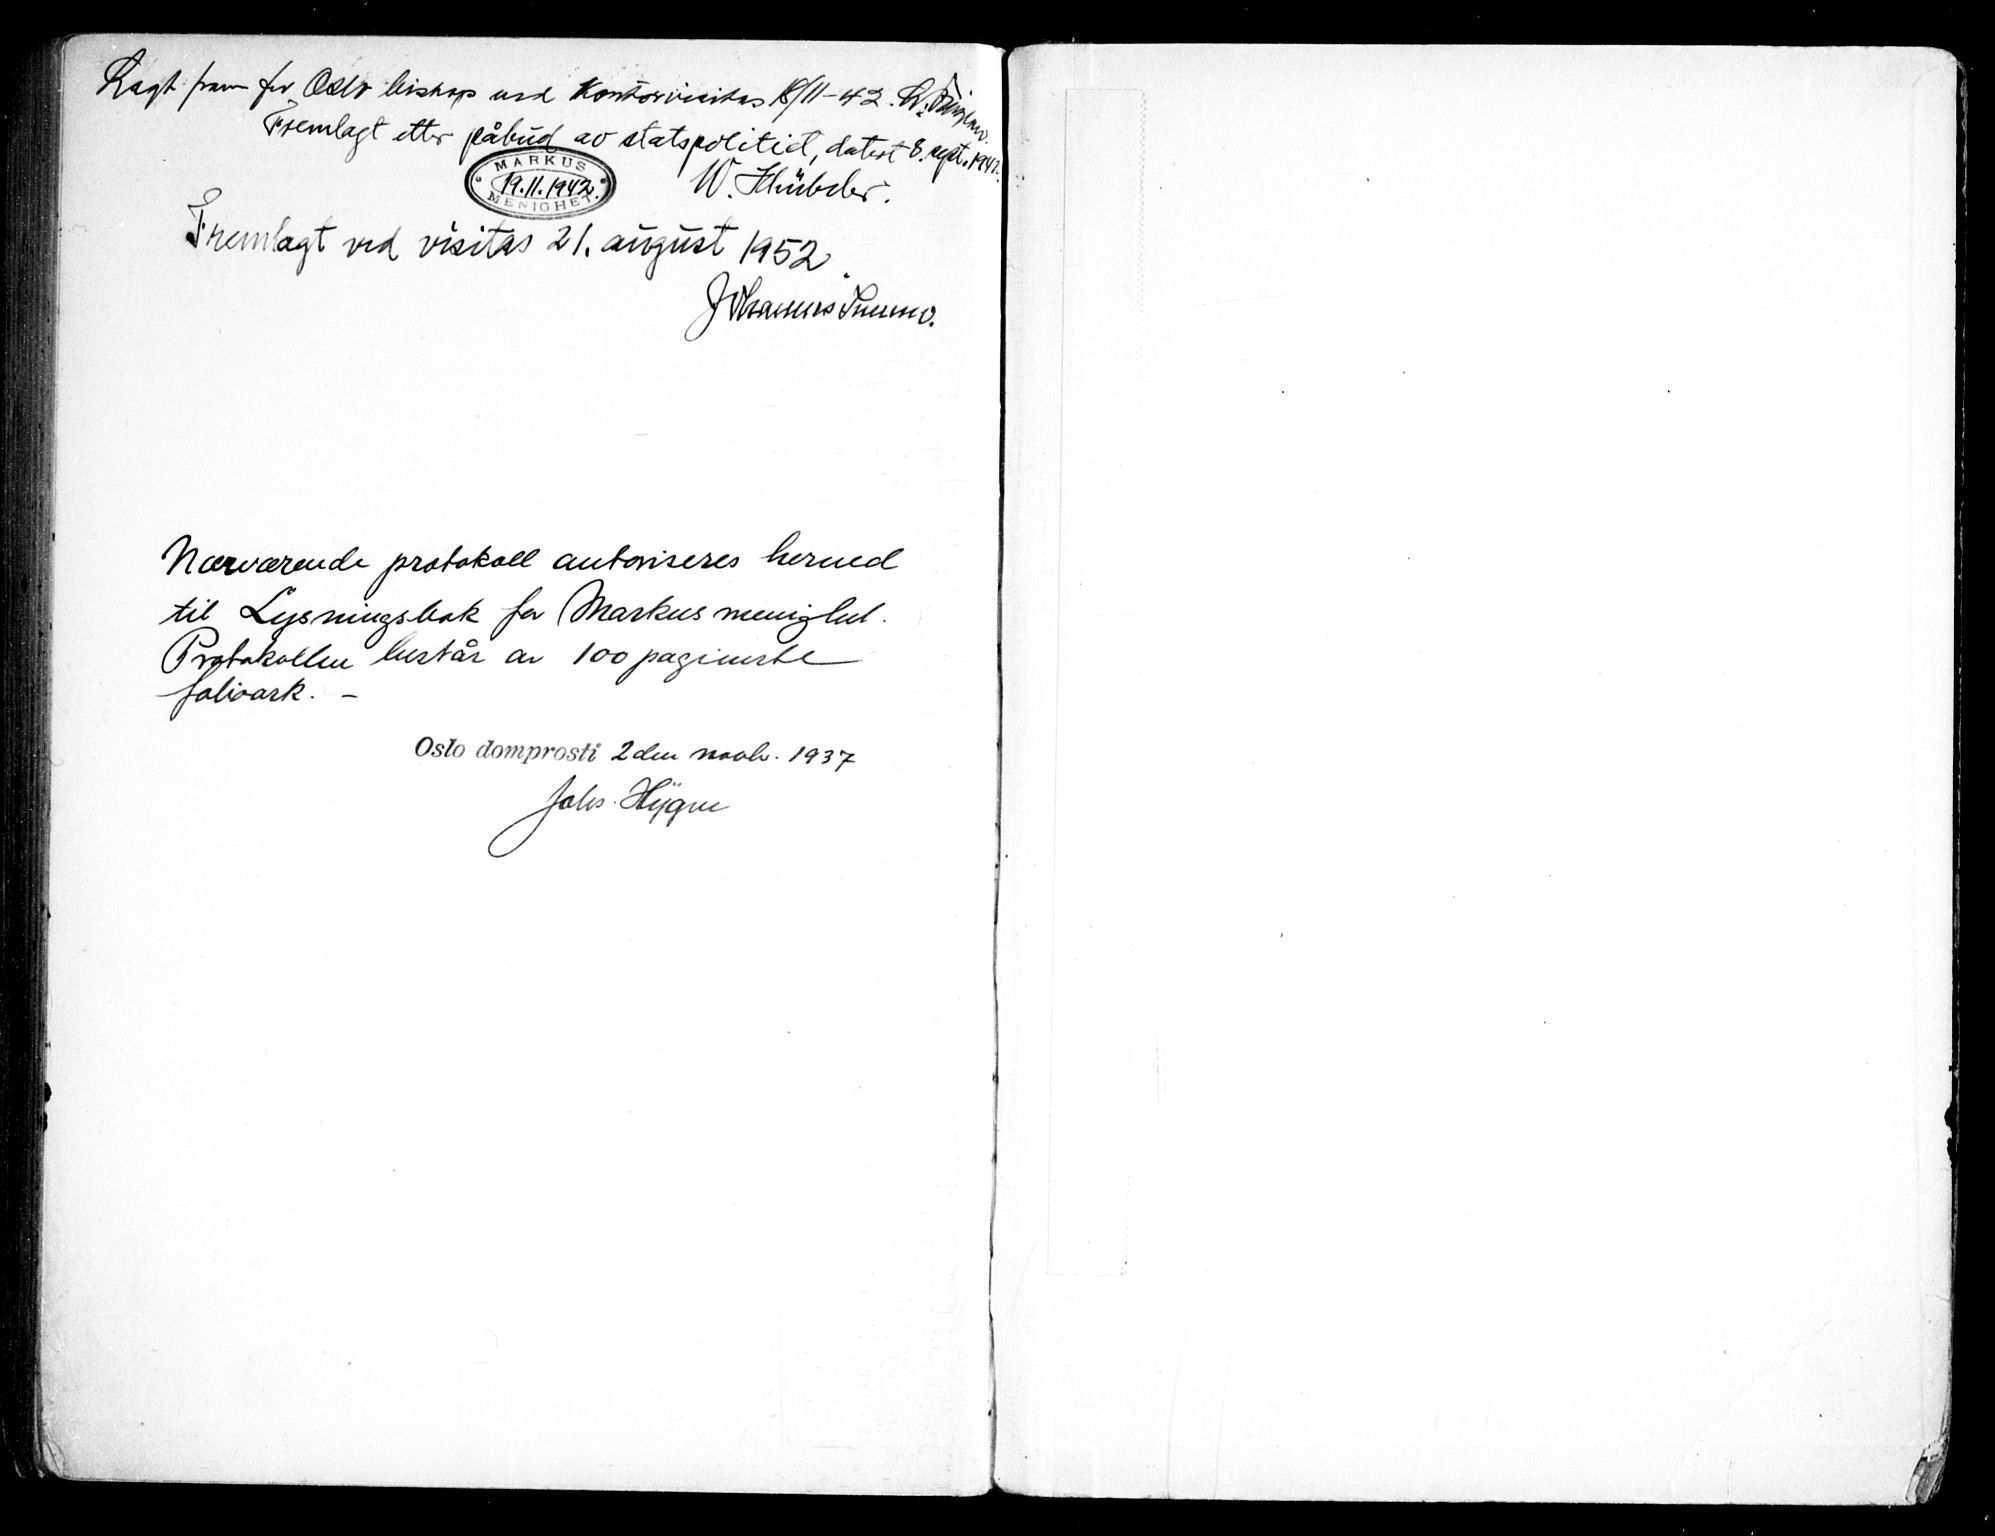 Lagt fram for Oslo biskop ved Kontorvisitas 18/11-42.
Fremlagt etter påbud av statspolitiet, datert 8. sept. 1942.
MARKUS
19.11.1942.
MENIGHET.
W. Hübder.
Fremlagt ved visitas 21. august 1952.
Johannes
Nærværende protokoll autoriseres herved
til Lysningsbok for Markus menighet.
Protokollen består av 100 paginerte
folioark. -
Oslo domprosti 2den novbr. 1937
Johs. Hygen